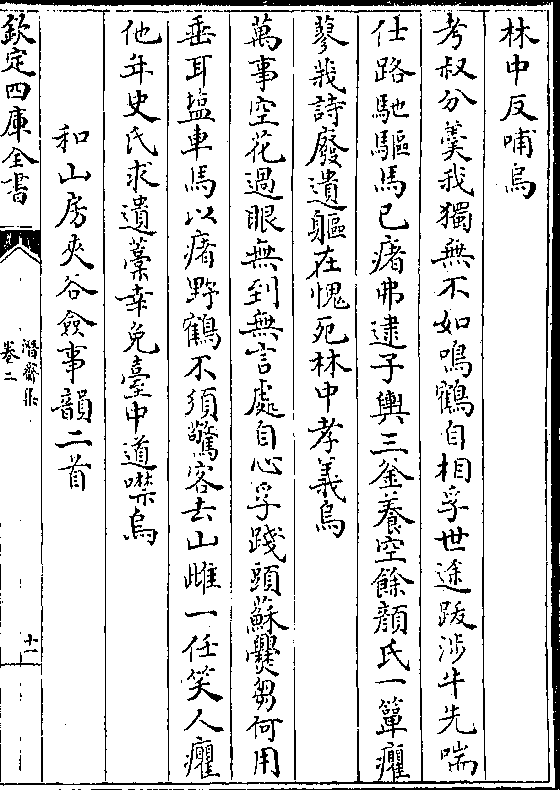 林中反哺烏
考叔分羮我獨無不如鳴鶴自相孚世途跋涉牛先喘
仕路馳驅馬已瘏弗逮子輿三釜養空餘顔氏一簞癯
蓼莪詩廢遺軀在愧死林中孝義烏
萬事空花過眼無到無言處自心孚踐頭蘇爨芻何用
垂耳塩車馬以瘏野鶴不須驚客去山雌一任笑人癯
他年史氏求遺藁幸免臺中道噤烏
和山房夾谷僉事韻二首
欽定四庫全書
潛齋集
卷二
十一